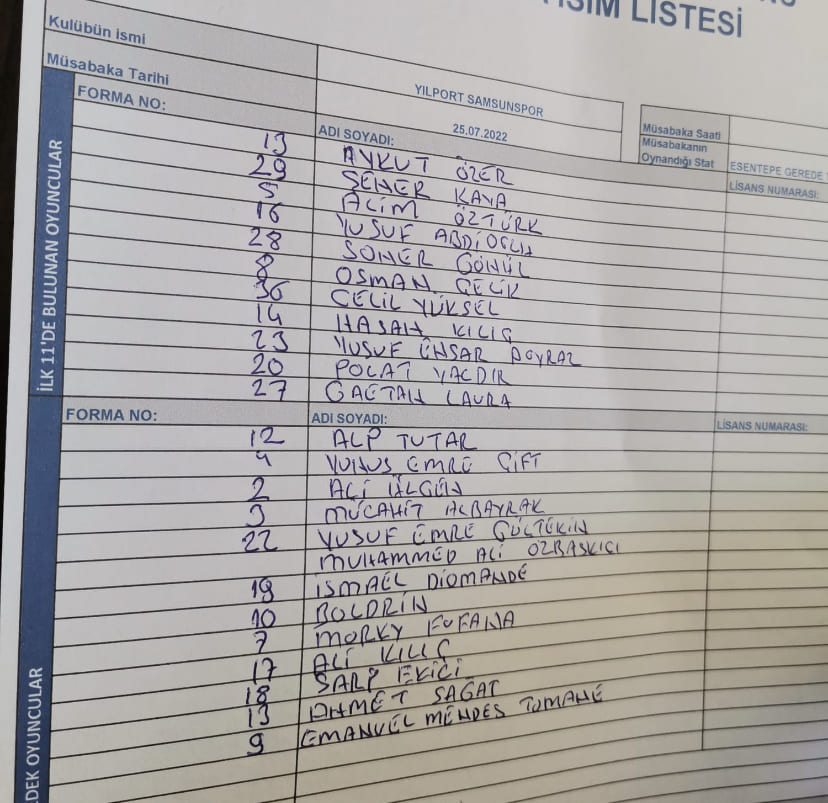 İSİM LİSTESİ
Kulübün ismi
YILPORT SAMSUNSPOR
Müsabaka Tarihi
25.07.2022
Müsabaka Saati
Müsabakanın
Oynandığı Stat
ESENTEPE GEREDE
FORMA NO:
ADI SOYADI:
LİSANS NUMARASI:
İLK 11'DE BULUNAN OYUNCULAR
13 AYKUT ÖZER
29 ŞENER KAYA
5 ACİM ÖZTÜRK
16 YUSUF ABDİOĞLU
28 SONER GÖNÜL
8 OSMAN ÇELİK
36 CELİL YÜKSEL
14 HASAN KILIÇ
23 YUSUF ENSAR POYRAZ
20 POLAT YALDIR
27 GAETAN LAURA
FORMA NO:
ADI SOYADI:
LİSANS NUMARASI:
DEK OYUNCULAR
12 ALP TUTAR
4 YUNUS EMRE ÇİFT
2 ALİ ÜLGEN
3 MÜCAHİT ALBAYRAK
22 YUSUF EMRE GÜLTEKİN
MUHAMMED ALİ ÖZBASKICI
19 İSMAEL DİOMANDE
10 BOLDRİN
7 MORKY FOFANA
17 ALİ KILIÇ
18 SARP EKİCİ
13 AHMET SAGAT
9 EMANUEL MENDES TOMANÉ